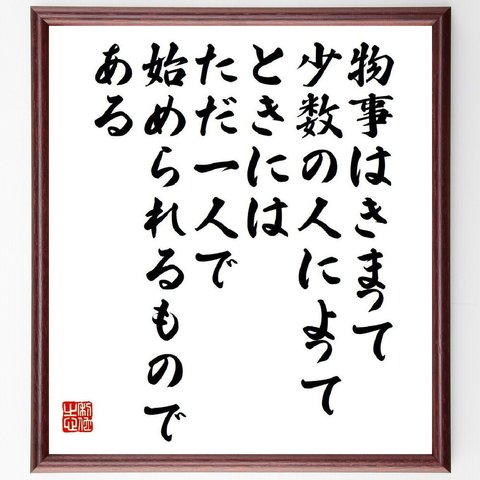 物事はきまって
少数の人によって
ときには
ただ一人で
始められるもので
ある